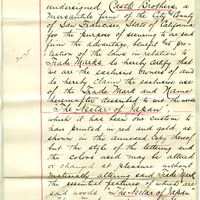 undersigned, Castle Brothers, a
mercantile firm of the City & County
of San Francisco, State of California
for the purpose of securing to ourselves
the advantage, benefit &
protection of the laws in relation to
Trade Marks, do hereby certify that
we are the exclusive owners of and
do hereby claim the exclusive use
of the Trade Mark and Name
hereinafter described to wit the words
"The Nectar of Japan"
which it has been our custom to
have printed in red and gold, as
shown in the annexed copy thereof
but the style of the lettering and
the colors used may be altered
or changed at pleasure without
materially altering said Trade Mark
the essential features of which are
said words "The Nectar of Japan